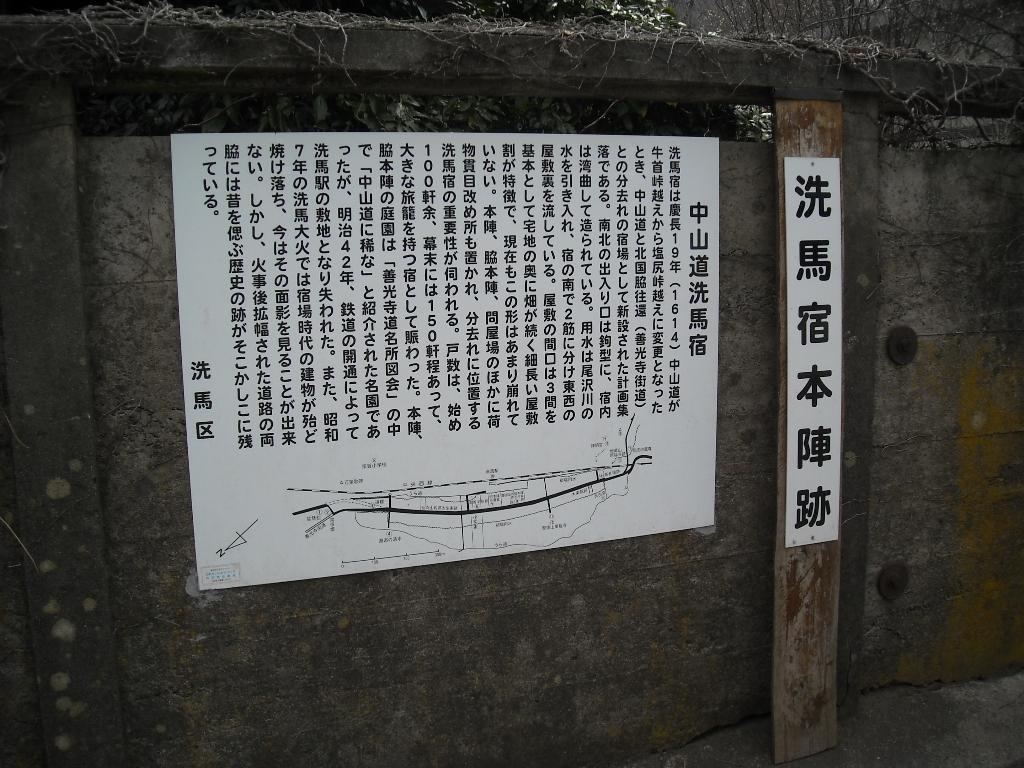 中山道洗馬宿
洗馬宿は慶長19年（1614）中山道が
牛首峠越えから塩尻峠越えに変更となった
とき、中山道と北国脇往還（善光寺街道）
との分去れの宿場として新設された計画集
落である。南北の出入り口は鉤型に、宿内
は湾曲して造られている。用水は尾沢川の
水を引き入れ、宿の南で2筋に分け東西の
屋敷裏を流している。屋敷の間口は3間を
基本として宅地の奥に畑が続く細長い屋敷
割が特徴で、現在もこの形はあまり崩れて
いない。本陣、脇本陣、問屋場のほかに荷
物貫目改め所も置かれ、分去れに位置する
洗馬宿の重要性が伺われる。戸数は、始め
100軒余、幕末には150軒程あって、
大きな旅籠を持つ宿として賑わった。本陣、
脇本陣の庭園は「善光寺道名所図会」の中
で「中山道に稀な」と紹介された名園であ
ったが、明治42年、鉄道の開通によって
洗馬駅の敷地となり失われた。また、昭和
7年の洗馬大火では宿場時代の建物が殆ど
焼け落ち、今はその面影を見ることが出来
ない。しかし、火事後拡幅された道路の両
脇には昔を偲ぶ歴史の跡がそこかしこに残
っている。
洗馬区
中央西線
洗馬宿本陣跡